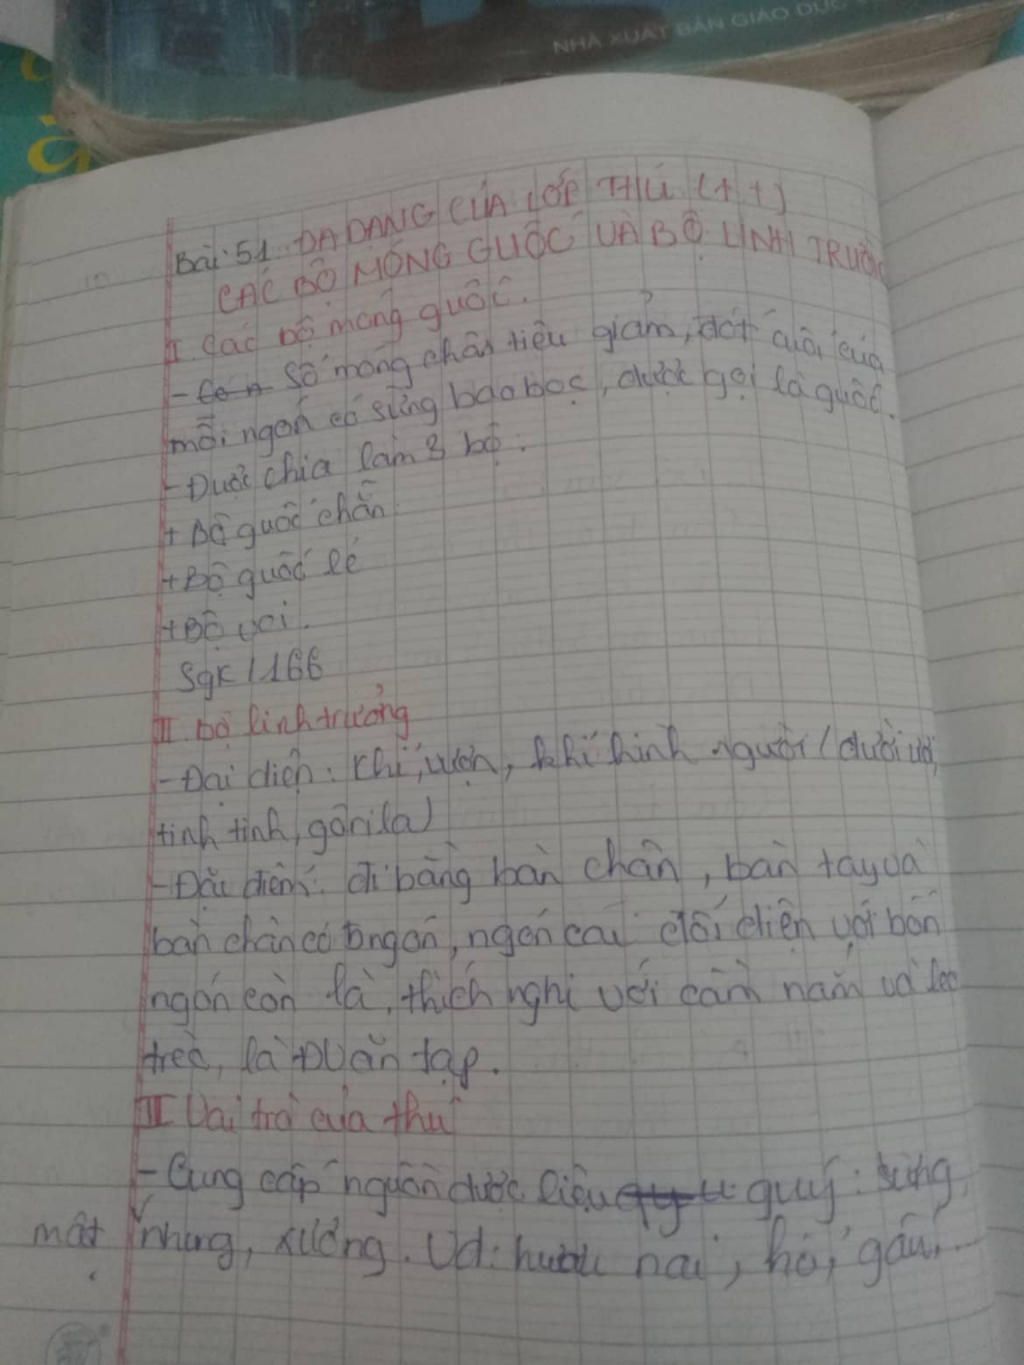 NHÀ XUẤT BẢN GIÁO DỤC
Bài 51 ĐA DẠNG CỦA LỚP THÚ (tt)
CÁC BỘ MÓNG GUỐC VÀ BỘ LINH TRƯỞNG
I. Các bộ móng guốc.
- Số móng chân tiêu giảm, đốt cuối của
mỗi ngón có sừng bao bọc, được gọi là guốc.
- Được chia làm 3 bộ:
+ Bộ guốc chẵn
+ Bộ guốc lẻ
+ Bộ voi.
Sgk / 166
II. Bộ linh trưởng
- Đại diện: Khỉ, vượn, khỉ hình người (đười ươi,
tinh tinh, gôrila)
- Đặc điểm: đi bằng bàn chân, bàn tay và
bàn chân có 5 ngón, ngón cái đối diện với bốn
ngón còn lại, thích nghi với cầm nắm và leo
trèo, là ĐV ăn tạp.
III Vai trò của thú
- Cung cấp nguồn dược liệu quý: sừng,
mật nhung, xương. Vd: hươu nai, hổ, gấu,...